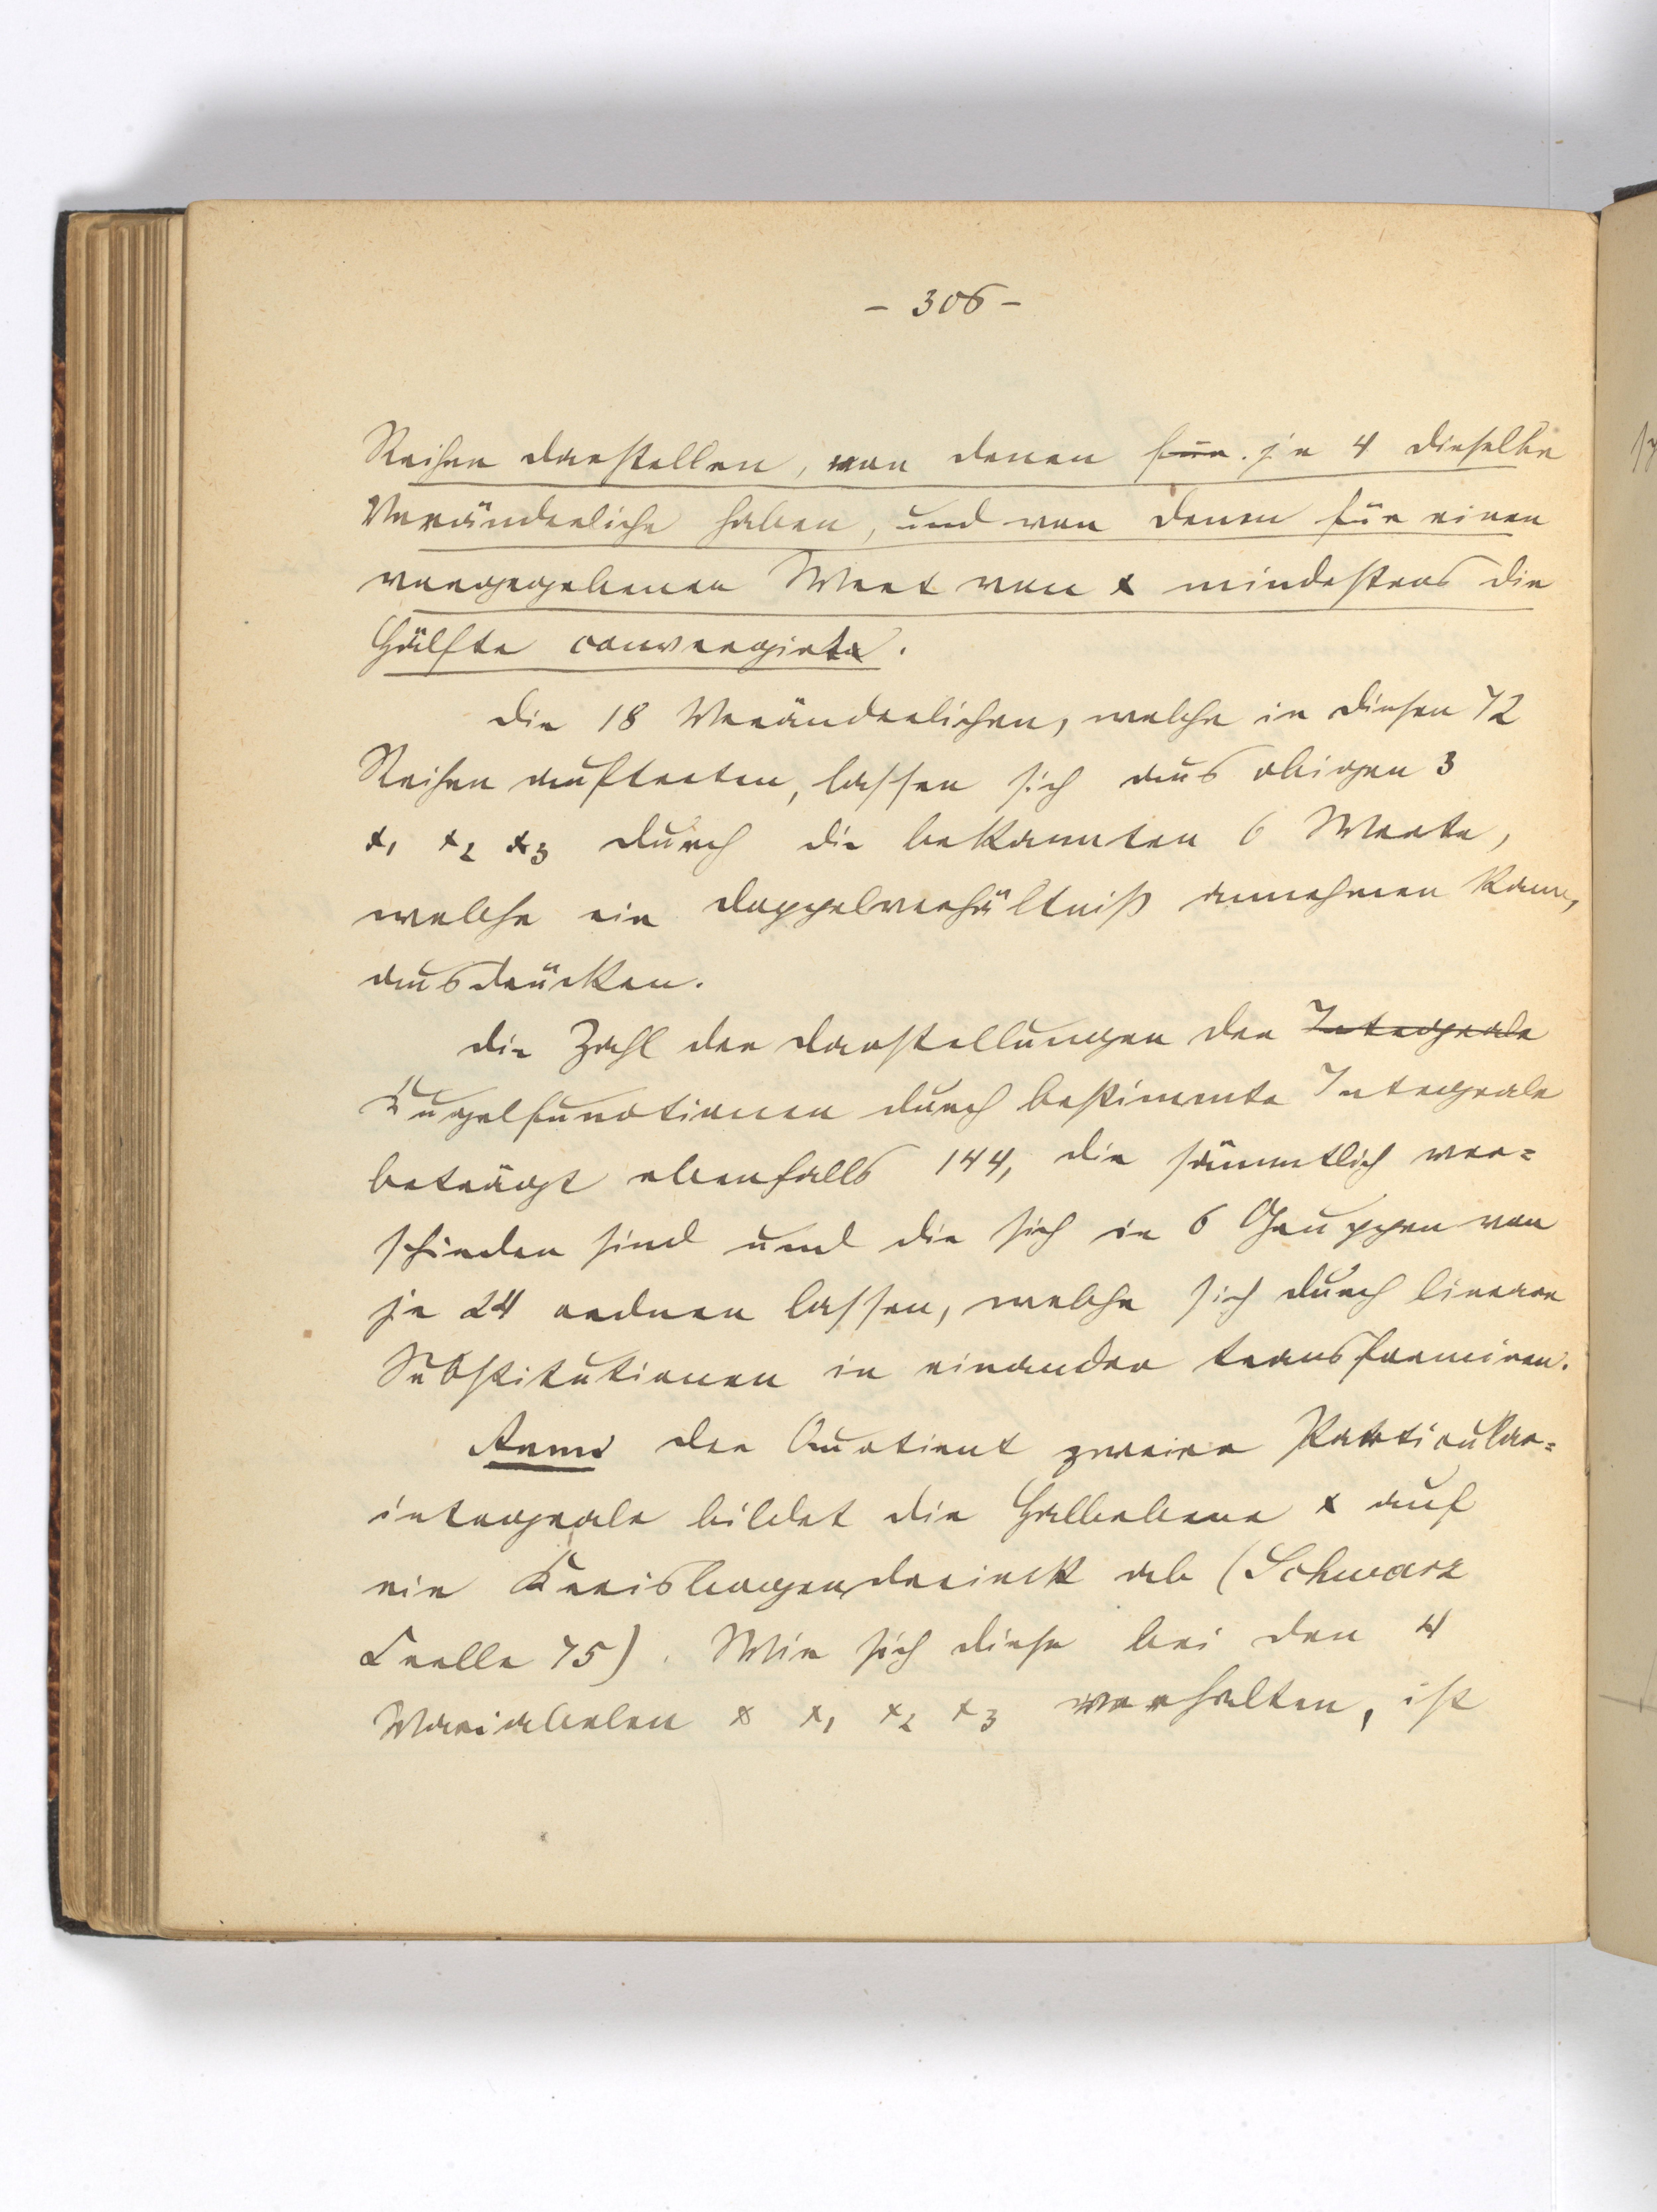 - 306 -
Reihen darstellen, von denen je 4 dieselbe
Veränderliche haben, und von denen für einen
vorgegebenen Wert von x mindestens die
Hälfte convergirte.
Die 18 Veränderlichen, welche in diesen 72
Reihen auftreten, lassen sich aus obigen 3
x₁ x₂ x₃ durch die bekannten 6 Werte,
welche ein Doppelverhältniß annehmen kann,
ausdrücken.
Die Zahl der Darstellungen der Integrale
Kugelfunctionen durch bestimmte Integrale
beträgt ebenfalls 144, die sämmtlich ver=
schieden sind und die sich in 6 Gruppen von
je 24 ordnen lassen, welche sich durch lineare
Substitutionen in einander transformiren.
Anm. Der Quotient zweier Partikular=
integrale bildet die Halbebene x auf
ein Kreisbogendreieck ab (Schwarz
Crelle 75). Wie sich diese bei den 4
Variabelen x x₁ x₂ x₃ verhalten, ist